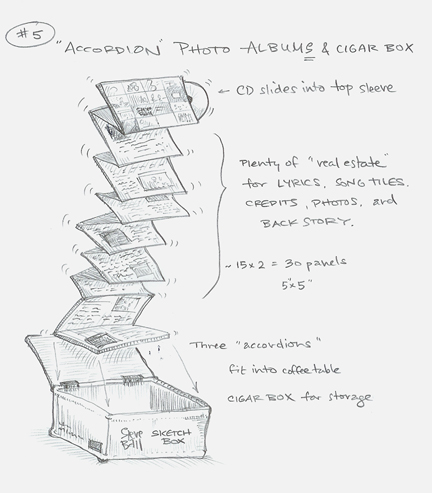 #5
"ACCORDION" PHOTO ALBUMS & CIGAR BOX
← CD slides into top sleeve
Plenty of "real estate"
for LYRICS, SONG TILES.
CREDITS, PHOTOS, and
BACK STORY.
~ 15 x 2 = 30 panels
5"x5"
Three "accordions"
fit into coffee table
CIGAR BOX for storage
Steve Ball
SKETCH
BOX